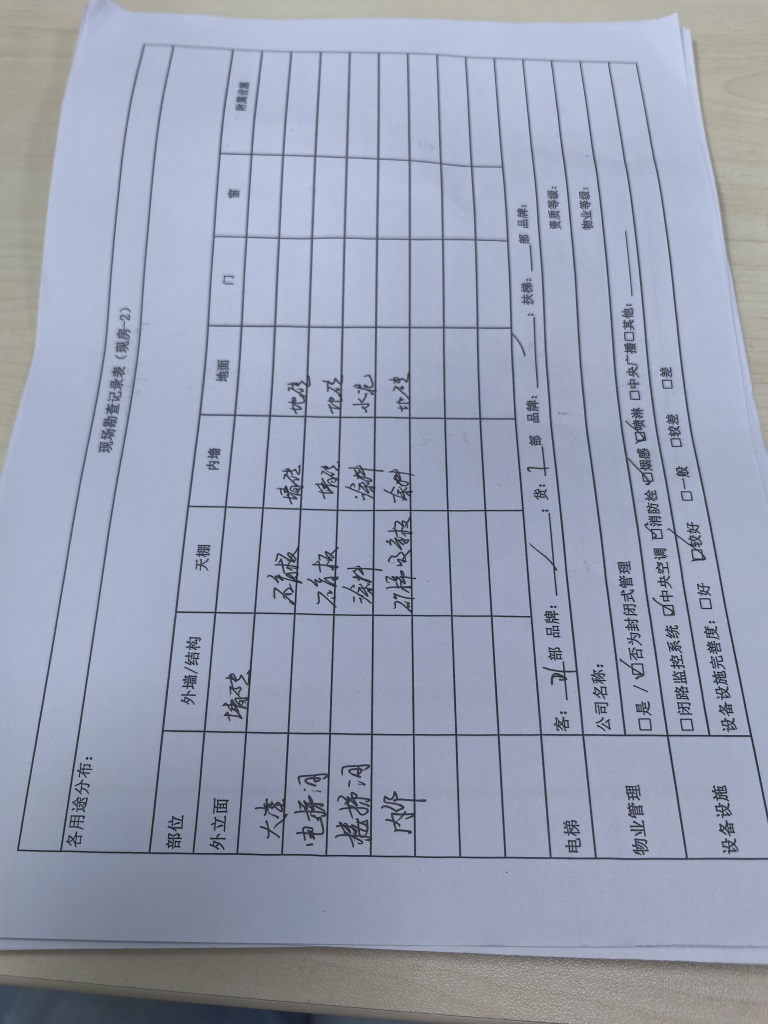 现场勘查记录表（现房-2）
各用途分布：
部位 外墙/结构 天棚 内墙 地面 门 窗 附属设施
外立面 墙砖
大堂 石膏板 墙砖 地砖
电梯间 石膏板 墙砖 地砖
楼梯间 涂料 涂料 水泥
内部 矿棉吸音板 涂料 地砖
电梯 客： 部 品牌： ；货： 部 品牌： ；扶梯： 部 品牌：
物业管理 公司名称： 资质等级：
□是 / ☑否为封闭式管理 物业等级：
设备设施 □闭路监控系统 ☑中央空调 ☑消防栓 ☑烟感 ☑喷淋 □中央广播□其他：
设备设施完善度：□好 ☑较好 □一般 □较差 □差